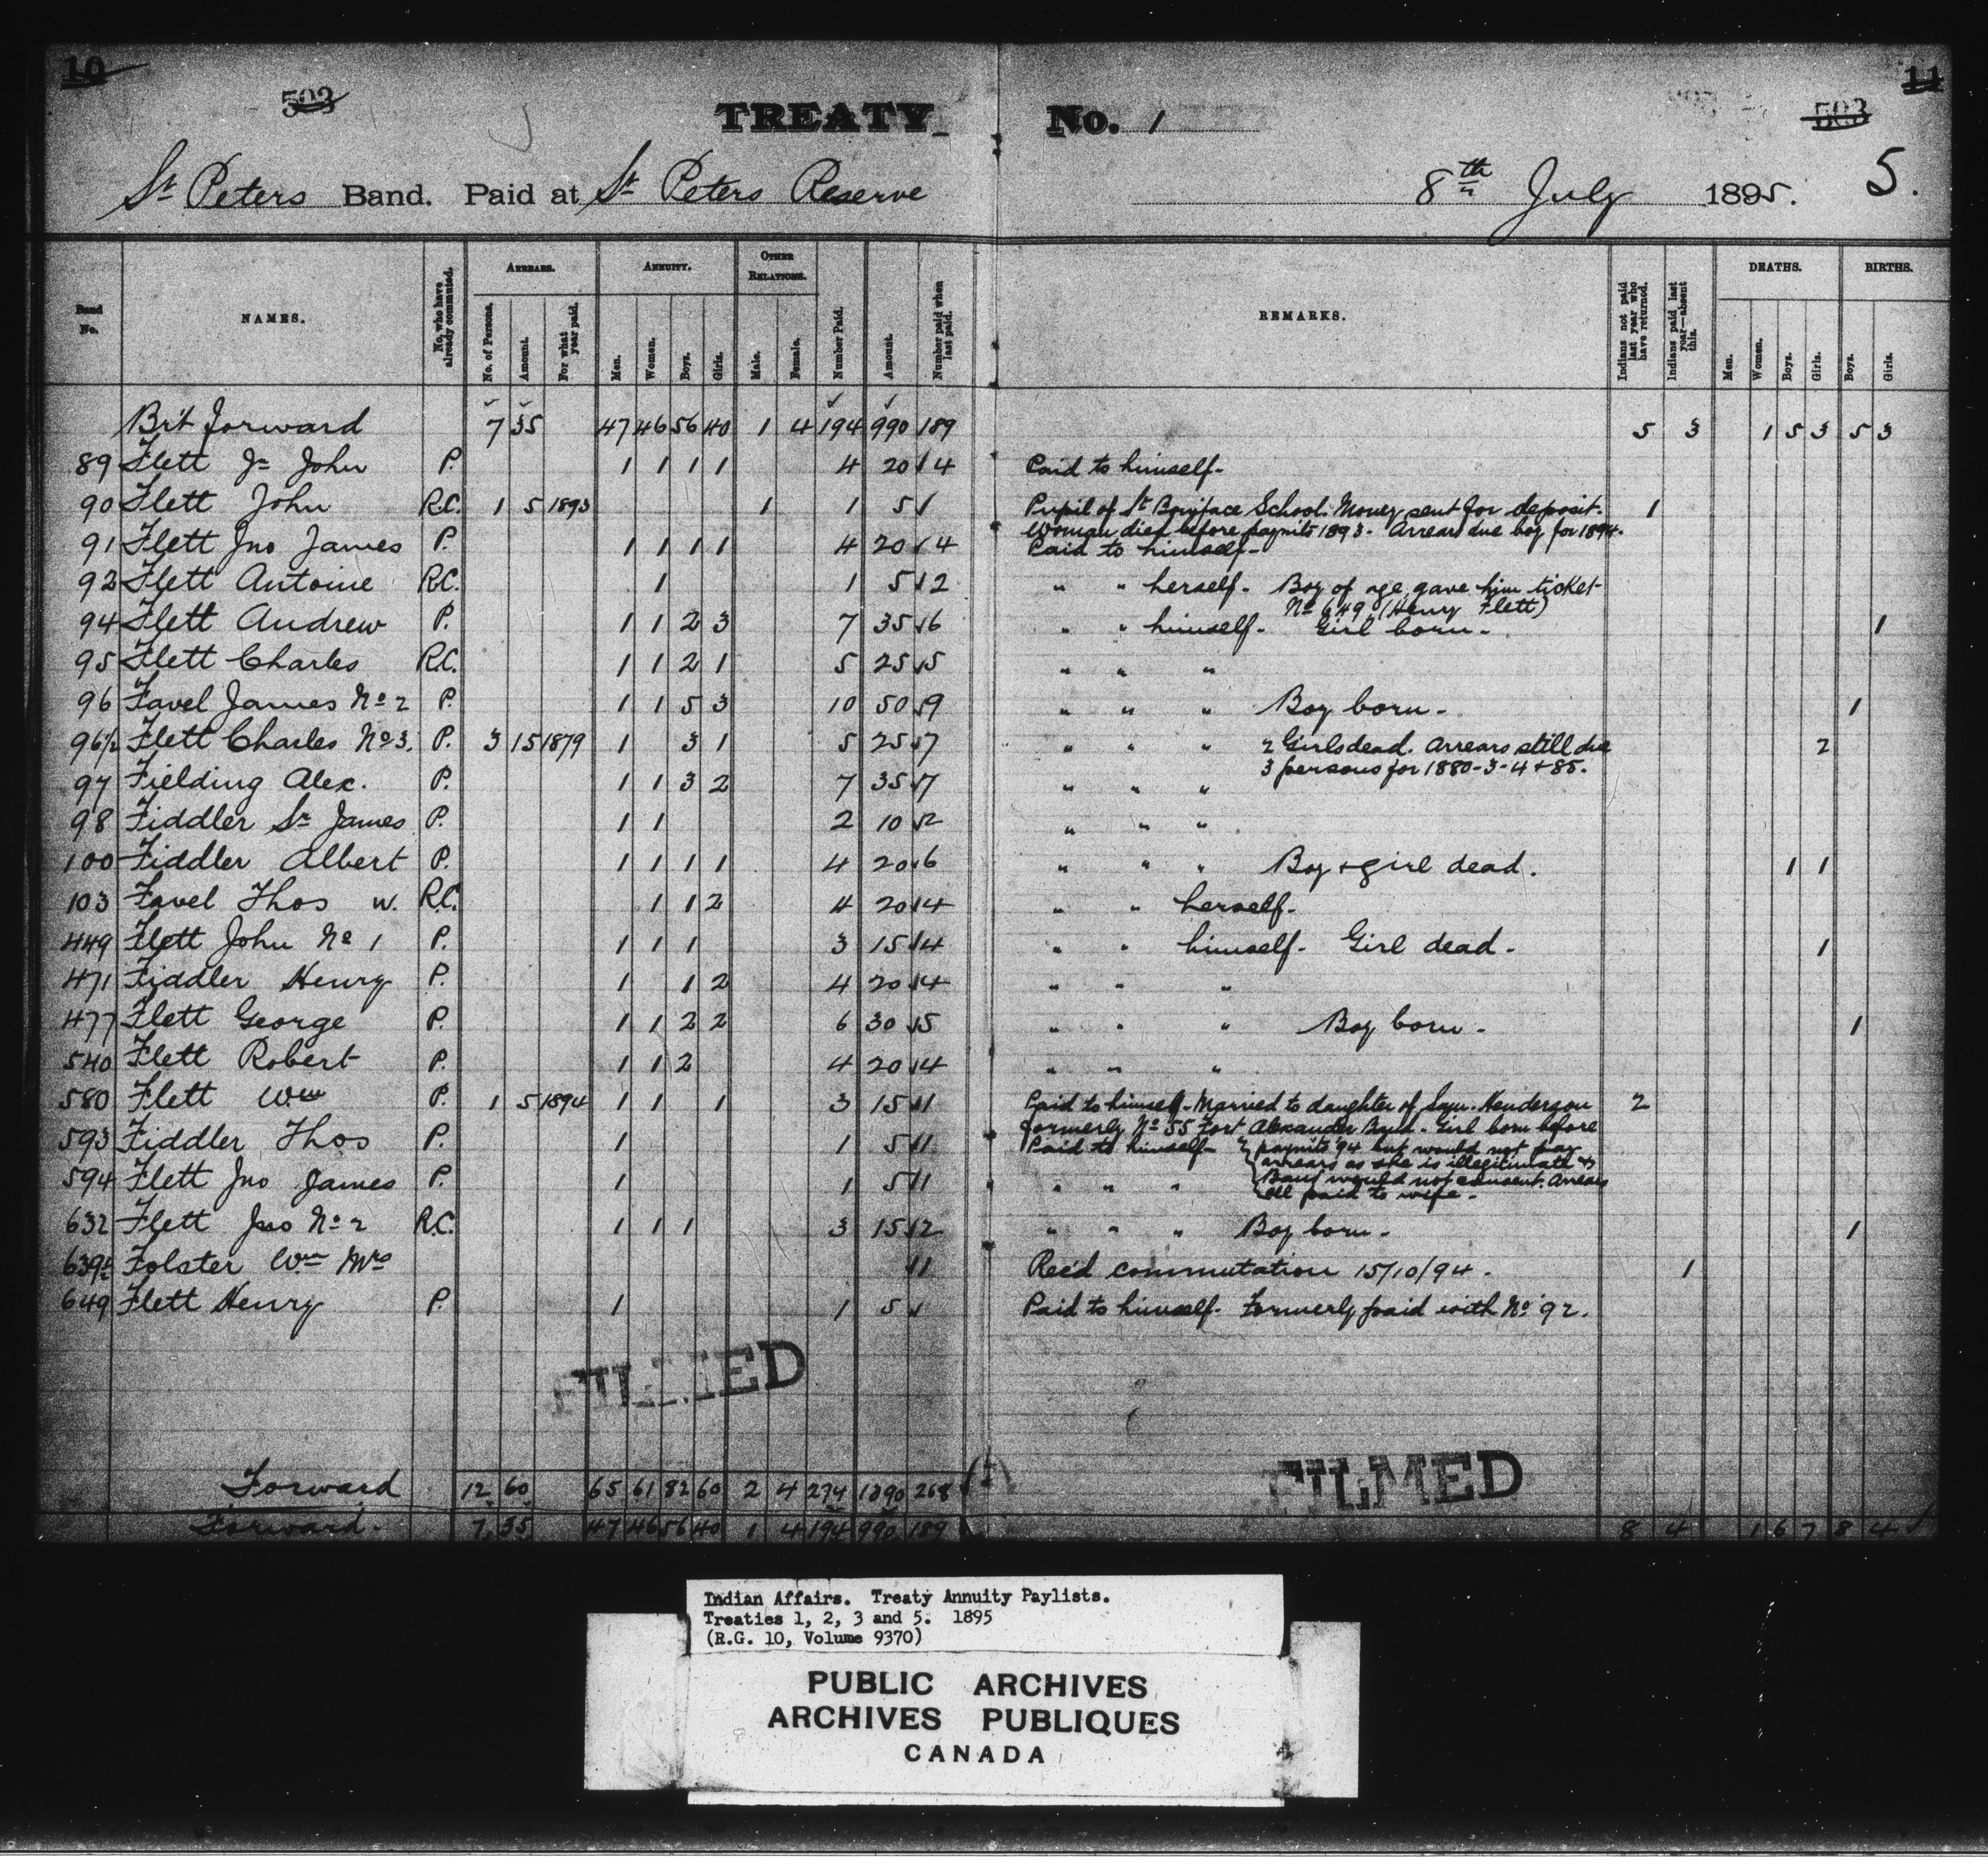 10 11
503 503
TREATY No. 1
St Peters Band. Paid at St Peters Reserve 8th July 1895. 5.
Band No. NAMES. No. who have already commuted. ARREARS. No. of Persons. Amount. For what year paid. ANNUITY. Men. Women. Boys. Girls. OTHER RELATIONS. Male. Female. Number Paid. Amount. Number paid when last paid. REMARKS. Indians not paid last year who have returned. Indians paid last year—absent this. DEATHS. Men. Women. Boys. Girls. BIRTHS. Boys. Girls.
Brt forward 7 35 47 46 56 40 1 4 194 990 189 5 3 1 5 3 5 3
89 Flett Jr John P. 1 1 1 1 4 20 4 Paid to himself-
90 Flett John R.C. 1 5 1893 1 1 5 Pupil of St Boniface School. Money sent for deposit. 1
Woman died before paymts 1893. Arrears due boy for 1894.
91 Flett Jno James P. 1 1 1 1 4 20 4 Paid to himself-
92 Flett Antoine R.C. 1 1 5 2 " " herself- Boy of age, gave him ticket
No 649 (Henry Flett)
94 Flett Andrew P. 1 1 2 3 7 35 6 " " himself- Girl born- 1
95 Flett Charles R.C. 1 1 2 1 5 25 5 " " "
96 Favel James No 2 P. 1 1 5 3 10 50 9 " " " Boy born- 1
96½ Flett Charles No 3. P. 3 15 1879 1 3 1 5 25 7 " " " 2 Girls dead. Arrears still due 2
3 persons for 1880-3-4+85.
97 Fielding Alex. P. 1 1 3 2 7 35 7 " " "
98 Fiddler Sr James P. 1 1 2 10 2 " " "
100 Fiddler Albert P. 1 1 1 1 4 20 6 " " " Boy + girl dead. 1 1
103 Favel Thos W. R.C. 1 1 2 4 20 4 " " herself-
449 Flett John No 1 P. 1 1 1 3 15 4 " " himself- Girl dead- 1
471 Fiddler Henry P. 1 1 2 4 20 4 " " "
477 Flett George P. 1 1 2 2 6 30 5 " " " Boy born- 1
540 Flett Robert P. 1 1 2 4 20 4 " " "
580 Flett Wm P. 1 5 1894 1 1 1 3 15 1 Paid to himself- Married to daughter of Saml. Henderson 2
formerly No 55 Fort Alexander Band- Girl born before
593 Fiddler Thos P. 1 1 5 1 Paid to himself- paymts '94 but would not pay
arrears as she is illegitimate &
594 Flett Jno James P. 1 1 5 1 " " " Band would not consent. Arrears
all paid to wife-
632 Flett Jno No 2 R.C. 1 1 1 3 15 2 " " " Boy born- 1
639 Folster Wm Mrs 1 Rec'd commutation 15/10/94. 1
649 Flett Henry P. 1 1 5 Paid to himself- Formerly paid with No 92.
FILMED
FILMED
Forward 12 60 65 61 82 60 2 4 274 1390 268
Forward- 7 35 47 46 56 40 1 4 194 990 189 8 4 1 6 7 8 4
Indian Affairs. Treaty Annuity Paylists.
Treaties 1, 2, 3 and 5. 1895
(R.G. 10, Volume 9370)
PUBLIC ARCHIVES
ARCHIVES PUBLIQUES
CANADA